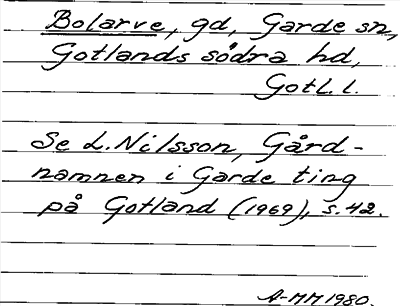 Bolarve, gd, Garde sn,
Gotlands södra hd,
Gotl. l.
Se L. Nilsson, Gård-
namnen i Garde ting
på Gotland (1969), s. 42.
A-MM 1980.